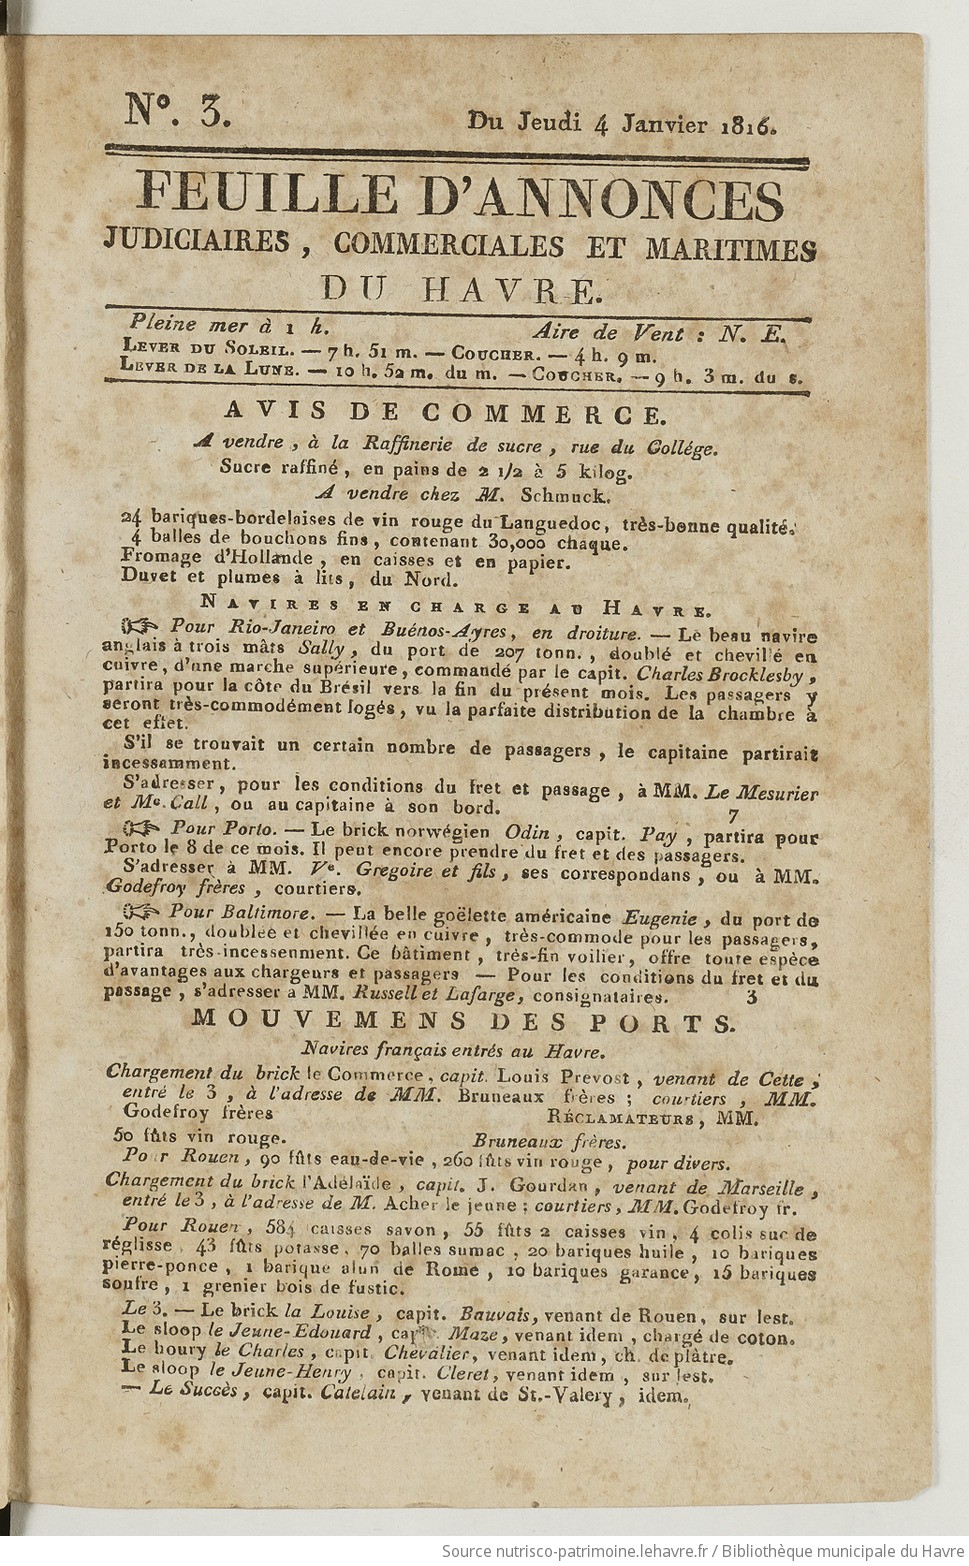 N°. 3. Du Jeudi 4 Janvier 1816.
FEUILLE D'ANNONCES
JUDICIAIRES, COMMERCIALES ET MARITIMES
DU HAVRE.
Pleine mer à 1 h. Aire de Vent : N. E.
LEVER DU SOLEIL. — 7 h. 51 m. — COUCHER. — 4 h. 9 m.
LEVER DE LA LUNE. — 10 h. 52 m. du m. — COUCHER. — 9 h. 3 m. du s.
AVIS DE COMMERCE.
A vendre, à la Raffinerie de sucre, rue du Collége.
Sucre raffiné, en pains de 2 1/2 à 5 kilog.
A vendre chez M. Schmuck.
24 bariques-bordelaises de vin rouge du Languedoc, très-bonne qualité.
4 balles de bouchons fins, contenant 30,000 chaque.
Fromage d'Hollande, en caisses et en papier.
Duvet et plumes à lits, du Nord.
NAVIRES EN CHARGE AU HAVRE.
☞ Pour Rio-Janeiro et Buénos-Ayres, en droiture. — Le beau navire
anglais à trois mâts Sally, du port de 207 tonn., doublé et chevillé en
cuivre, d'une marche supérieure, commandé par le capit. Charles Brocklesby,
partira pour la côte du Brésil vers la fin du présent mois. Les passagers y
seront très-commodément logés, vu la parfaite distribution de la chambre à
cet effet.
S'il se trouvait un certain nombre de passagers, le capitaine partirait
incessamment.
S'adresser, pour les conditions du fret et passage, à MM. Le Mesurier
et Mc. Call, ou au capitaine à son bord. 7
☞ Pour Porto. — Le brick norwégien Odin, capit. Pay, partira pour
Porto le 8 de ce mois. Il peut encore prendre du fret et des passagers.
S'adresser à MM. Ve. Gregoire et fils, ses correspondans, ou à MM.
Godefroy frères, courtiers.
☞ Pour Baltimore. — La belle goëlette américaine Eugenie, du port de
150 tonn., doublée et chevillée en cuivre, très-commode pour les passagers,
partira très-incessenment. Ce bâtiment, très-fin voilier, offre toute espèce
d'avantages aux chargeurs et passagers — Pour les conditions du fret et du
passage, s'adresser à MM. Russell et Lafarge, consignataires. 3
MOUVEMENS DES PORTS.
Navires français entrés au Havre.
Chargement du brick le Commerce, capit. Louis Prevost, venant de Cette,
entré le 3, à l'adresse de MM. Bruneaux frères ; courtiers, MM.
Godefroy frères RÉCLAMATEURS, MM.
50 fûts vin rouge. Bruneaux frères.
Pour Rouen, 90 fûts eau-de-vie, 260 fûts vin rouge, pour divers.
Chargement du brick l'Adélaïde, capit. J. Gourdan, venant de Marseille,
entré le 3, à l'adresse de M. Acher le jeune ; courtiers, MM. Godefroy fr.
Pour Rouen, 584 caisses savon, 55 fûts 2 caisses vin, 4 colis suc de
réglisse, 43 fûts potasse, 70 balles sumac, 20 bariques huile, 10 bariques
pierre-ponce, 1 barique alun de Rome, 10 bariques garance, 15 bariques
soufre, 1 grenier bois de fustic.
Le 3. — Le brick la Louise, capit. Bauvais, venant de Rouen, sur lest.
Le sloop le Jeune-Edouard, capit. Maze, venant idem, chargé de coton.
Le houry le Charles, capit. Chevalier, venant idem, ch. de plâtre.
Le sloop le Jeune-Henry, capit. Cleret, venant idem, sur lest.
— Le Succès, capit. Catelain, venant de St.-Valery, idem.
Source nutrisco-patrimoine.lehavre.fr / Bibliothèque municipale du Havre